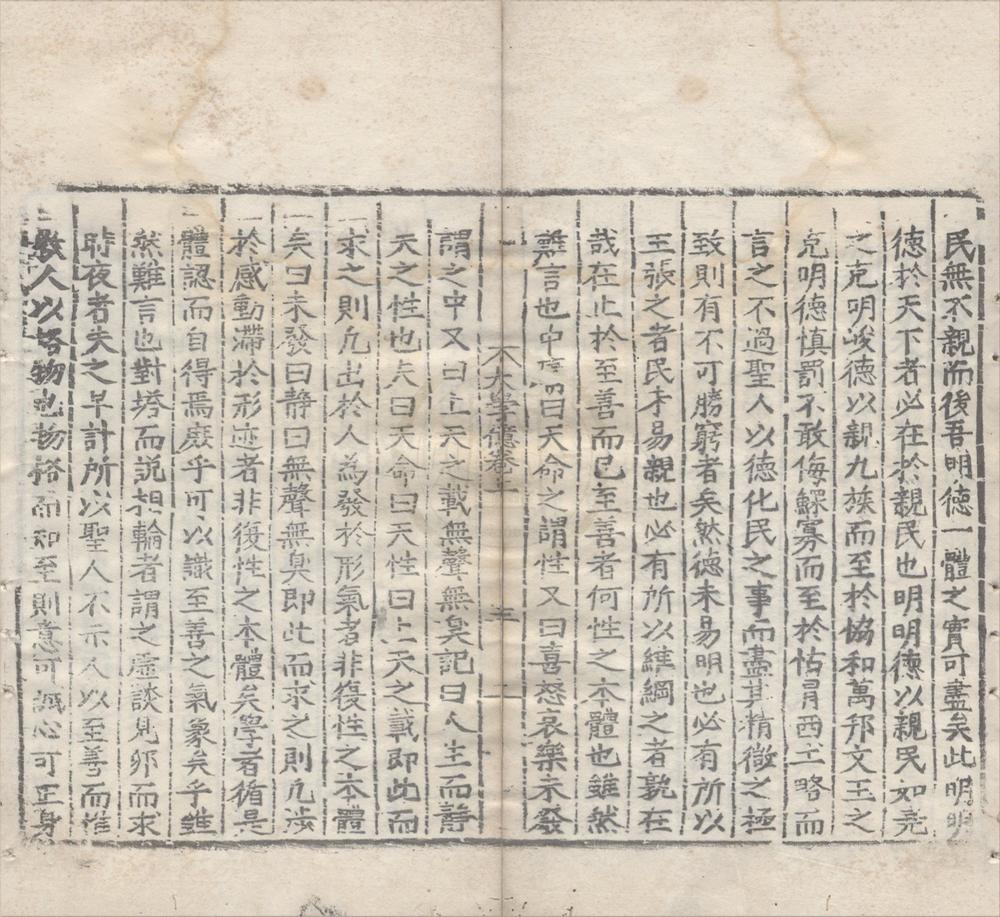 民無不親而後吾明德一體之實可盡矣此明明
德於天下者必在於親民也明明德以親民如堯
之克明峻德以親九族而至於協和萬邦文王之
克明德慎罰不敢侮鰥寡而至於怙冒西土略而
言之不過聖人以德化民之事而盡其精微之極
致則有不可勝窮者矣然德未易明也必有所以
主張之者民未易親也必有所以維綱之者孰在
哉在止於至善而已至善者何性之本體也雖然
難言也中庸曰天命之謂性又曰喜怒哀樂未發
大學億卷上 三
謂之中又曰上天之載無聲無臭記曰人生而靜
天之性也夫曰天命曰天性曰上天之載即此而
求之則凡出於人為發於形氣者非復性之本體
矣曰未發曰靜曰無聲無臭即此而求之則凡涉
於感動滯於形迹者非復性之本體矣學者循是
體認而自得焉庶乎可以識至善之氣象矣乎雖
然難言也對塔而說相輪者謂之虛談見卵而求
時夜者失之早計所以聖人不示人以至善而惟
教人以格物也物格而知至則意可誠心可正身